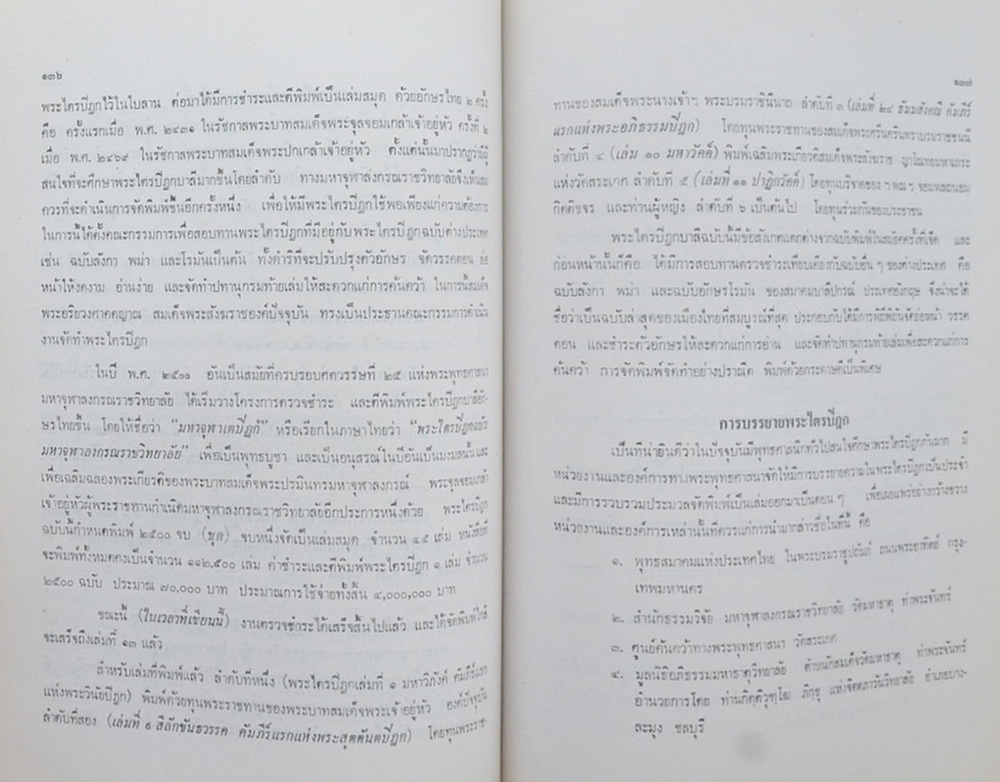 ๑๓๖
พระไตรปิฎกไว้ในใบลาน ต่อมาได้มีการชำระและตีพิมพ์เป็นเล่มสมุด ด้วยอักษรไทย ๒ ครั้ง
คือ ครั้งแรกเมื่อ พ.ศ. ๒๔๓๑ ในรัชกาลพระบาทสมเด็จพระจุลจอมเกล้าเจ้าอยู่หัว ครั้งที่ ๒
เมื่อ พ.ศ. ๒๔๖๙ ในรัชกาลพระบาทสมเด็จพระปกเกล้าเจ้าอยู่หัว ตั้งแต่นั้นมาปรากฏว่ามีผู้
สนใจที่จะศึกษาพระไตรปิฎกบาลีมากขึ้นโดยลำดับ ทางมหาจุฬาลงกรณราชวิทยาลัยจึงเห็นสม
ควรที่จะดำเนินการจัดพิมพ์ขึ้นอีกครั้งหนึ่ง เพื่อให้มีพระไตรปิฎกใช้พอเพียงแก่ความต้องการ
ในการนี้ได้ตั้งคณะกรรมการเพื่อสอบทานพระไตรปิฎกที่มีอยู่กับพระไตรปิฎกฉบับต่างประเทศ
เช่น ฉบับลังกา พม่า และโรมันเป็นต้น ทั้งดำริที่จะปรับปรุงตัวอักษร จัดวรรคตอน
หน้าให้งดงาม อ่านง่าย และจัดทำปทานุกรมท้ายเล่มให้สะดวกแก่การค้นคว้า ในการนี้สมเด็จ
พระอริยวงศาคตญาณ สมเด็จพระสังฆราชองค์ปัจจุบัน ทรงเป็นประธานคณะกรรมการดำเนิน
งานจัดทำพระไตรปิฎก
ในปี พ.ศ. ๒๕๐๐ อันเป็นสมัยที่ครบรอบศตวรรษที่ ๒๕ แห่งพระพุทธศาสนา
มหาจุฬาลงกรณราชวิทยาลัย ได้เริ่มวางโครงการตรวจชำระ และตีพิมพ์พระไตรปิฎกบาลีอัก-
ษรไทยขึ้น โดยให้ชื่อว่า "มหาจุฬาเตปิฏกํ" หรือเรียกในภาษาไทยว่า "พระไตรปิฎกฉบับ
มหาจุฬาลงกรณราชวิทยาลัย" เพื่อเป็นพุทธบูชา และเป็นอนุสรณ์ในปีอันเป็นมงคลนั้นและ
เพื่อเฉลิมฉลองพระเกียรติของพระบาทสมเด็จพระปรมินทรมหาจุฬาลงกรณ์ พระจุลจอมเกล้า
เจ้าอยู่หัวผู้พระราชทานกำเนิดมหาจุฬาลงกรณราชวิทยาลัยอีกประการหนึ่งด้วย พระไตรปิฎก
ฉบับนี้กำหนดพิมพ์ ๒๕๐๐ จบ (ชุด) จบหนึ่งจัดเป็นเล่มสมุด จำนวน ๔๕ เล่ม หนังสือที่
จะพิมพ์ทั้งหมดคงเป็นจำนวน ๑๑๒,๕๐๐ เล่ม ค่าชำระและตีพิมพ์พระไตรปิฎก ๑ เล่ม จำนวน
๒๕๐๐ ฉบับ ประมาณ ๗๐,๐๐๐ บาท ประมาณการใช้จ่ายทั้งสิ้น ๔,๐๐๐,๐๐๐ บาท
ขณะนี้ (ในเวลาที่เขียนนี้) งานตรวจชำระได้เสร็จสิ้นไปแล้ว และได้จัดพิมพ์ใกล้
จะเสร็จถึงเล่มที่ ๑๓ แล้ว
สำหรับเล่มที่พิมพ์แล้ว ลำดับที่หนึ่ง (พระไตรปิฎกเล่มที่ ๑ มหาวิภังค์ คัมภีร์แรก
แห่งพระวินัยปิฎก) พิมพ์ด้วยทุนพระราชทานของพระบาทสมเด็จพระเจ้าอยู่หัว องค์ปัจจุบัน
ลำดับที่สอง (เล่มที่ ๙ สีลักขันธวรรค คัมภีร์แรกแห่งพระสุตตันตปิฎก) โดยทุนพระราช-
๑๓๗
ทานของสมเด็จพระนางเจ้าฯ พระบรมราชินีนาถ ลำดับที่ ๓ (เล่มที่ ๒๔ ธัมมสังคณี คัมภีร์
แรกแห่งพระอภิธรรมปิฎก) โดยทุนพระราชทานของสมเด็จพระศรีนครินทราบรมราชชนนี
ลำดับที่ ๔ (เล่ม ๑๐ มหาวัคค์) พิมพ์เฉลิมพระเกียรติสมเด็จพระสังฆราช ญาโณทยมหาเถระ
แห่งวัดสระเกศ ลำดับที่ ๕ (เล่มที่ ๑๑ ปาฏิกวัคค์) โดยทุนบริจาคของ ฯพณฯ จอมพลถนอม
กิตติขจร และท่านผู้หญิง ลำดับที่ ๖ เป็นต้นไป โดยทุนร่วมกันของประชาชน
พระไตรปิฎกบาลีฉบับนี้มีข้อสังเกตแตกต่างจากฉบับพิมพ์ในสมัยครั้งที่เจ็ด และ
ก่อนหน้านั้นก็คือ ได้มีการสอบทานตรวจชำระเทียบเคียงกับฉบับอื่น ๆ ของต่างประเทศ คือ
ฉบับลังกา พม่า และฉบับอักษรโรมัน ของสมาคมบาลีปกรณ์ ประเทศอังกฤษ จึงน่าจะได้
ชื่อว่าเป็นฉบับล่าสุดของเมืองไทยที่สมบูรณ์ที่สุด ประกอบกับได้มีการพิถีพิถันจัดย่อหน้า วรรค
ตอน และชำระตัวอักษรให้สะดวกแก่การอ่าน และจัดทำปทานุกรมท้ายเล่มเพื่อสะดวกแก่การ
ค้นคว้า การจัดพิมพ์จัดทำอย่างปราณีต พิมพ์ด้วยกระดาษดีเป็นพิเศษ
การบรรยายพระไตรปิฎก
เป็นที่น่ายินดีว่าในปัจจุบันมีพุทธศาสนิกทั่วไปสนใจศึกษาพระไตรปิฎกกันมาก มี
หน่วยงานและองค์การทางพระพุทธศาสนาจัดให้มีการบรรยายความในพระไตรปิฎกเป็นประจำ
และมีการรวบรวมประมวลจัดพิมพ์เป็นเล่มออกมาเป็นตอน ๆ เพื่อเผยแพร่อย่างกว้างขวาง
หน่วยงานและองค์การเหล่านั้นที่ควรแก่การนำมากล่าวชื่อในที่นี้ คือ
๑. พุทธสมาคมแห่งประเทศไทย ในพระบรมราชูปถัมภ์ ถนนพระอาทิตย์ กรุง-
เทพมหานคร
๒. สำนักธรรมวิจัย มหาจุฬาลงกรณราชวิทยาลัย วัดมหาธาตุ ท่าพระจันทร์
๓. ศูนย์ค้นคว้าทางพระพุทธศาสนา วัดสระเกศ
๔. มูลนิธิอภิธรรมมหาธาตุวิทยาลัย ตำหนักสมเด็จวัดมหาธาตุ ท่าพระจันทร์
อำนวยการโดย ท่านกิตติวุฑโฒ ภิกขุ แห่งจิตตภาวันวิทยาลัย อำเภอบาง-
ละมุง ชลบุรี